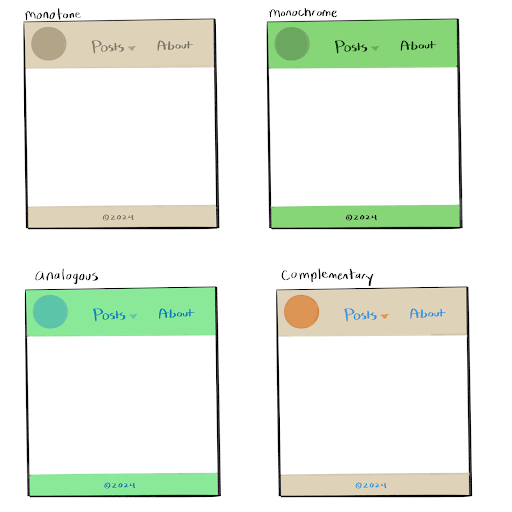 monotone
Posts About
©2024
monochrome
Posts About
©2024
analogous
Posts About
©2024
Complementary
Posts About
©2024